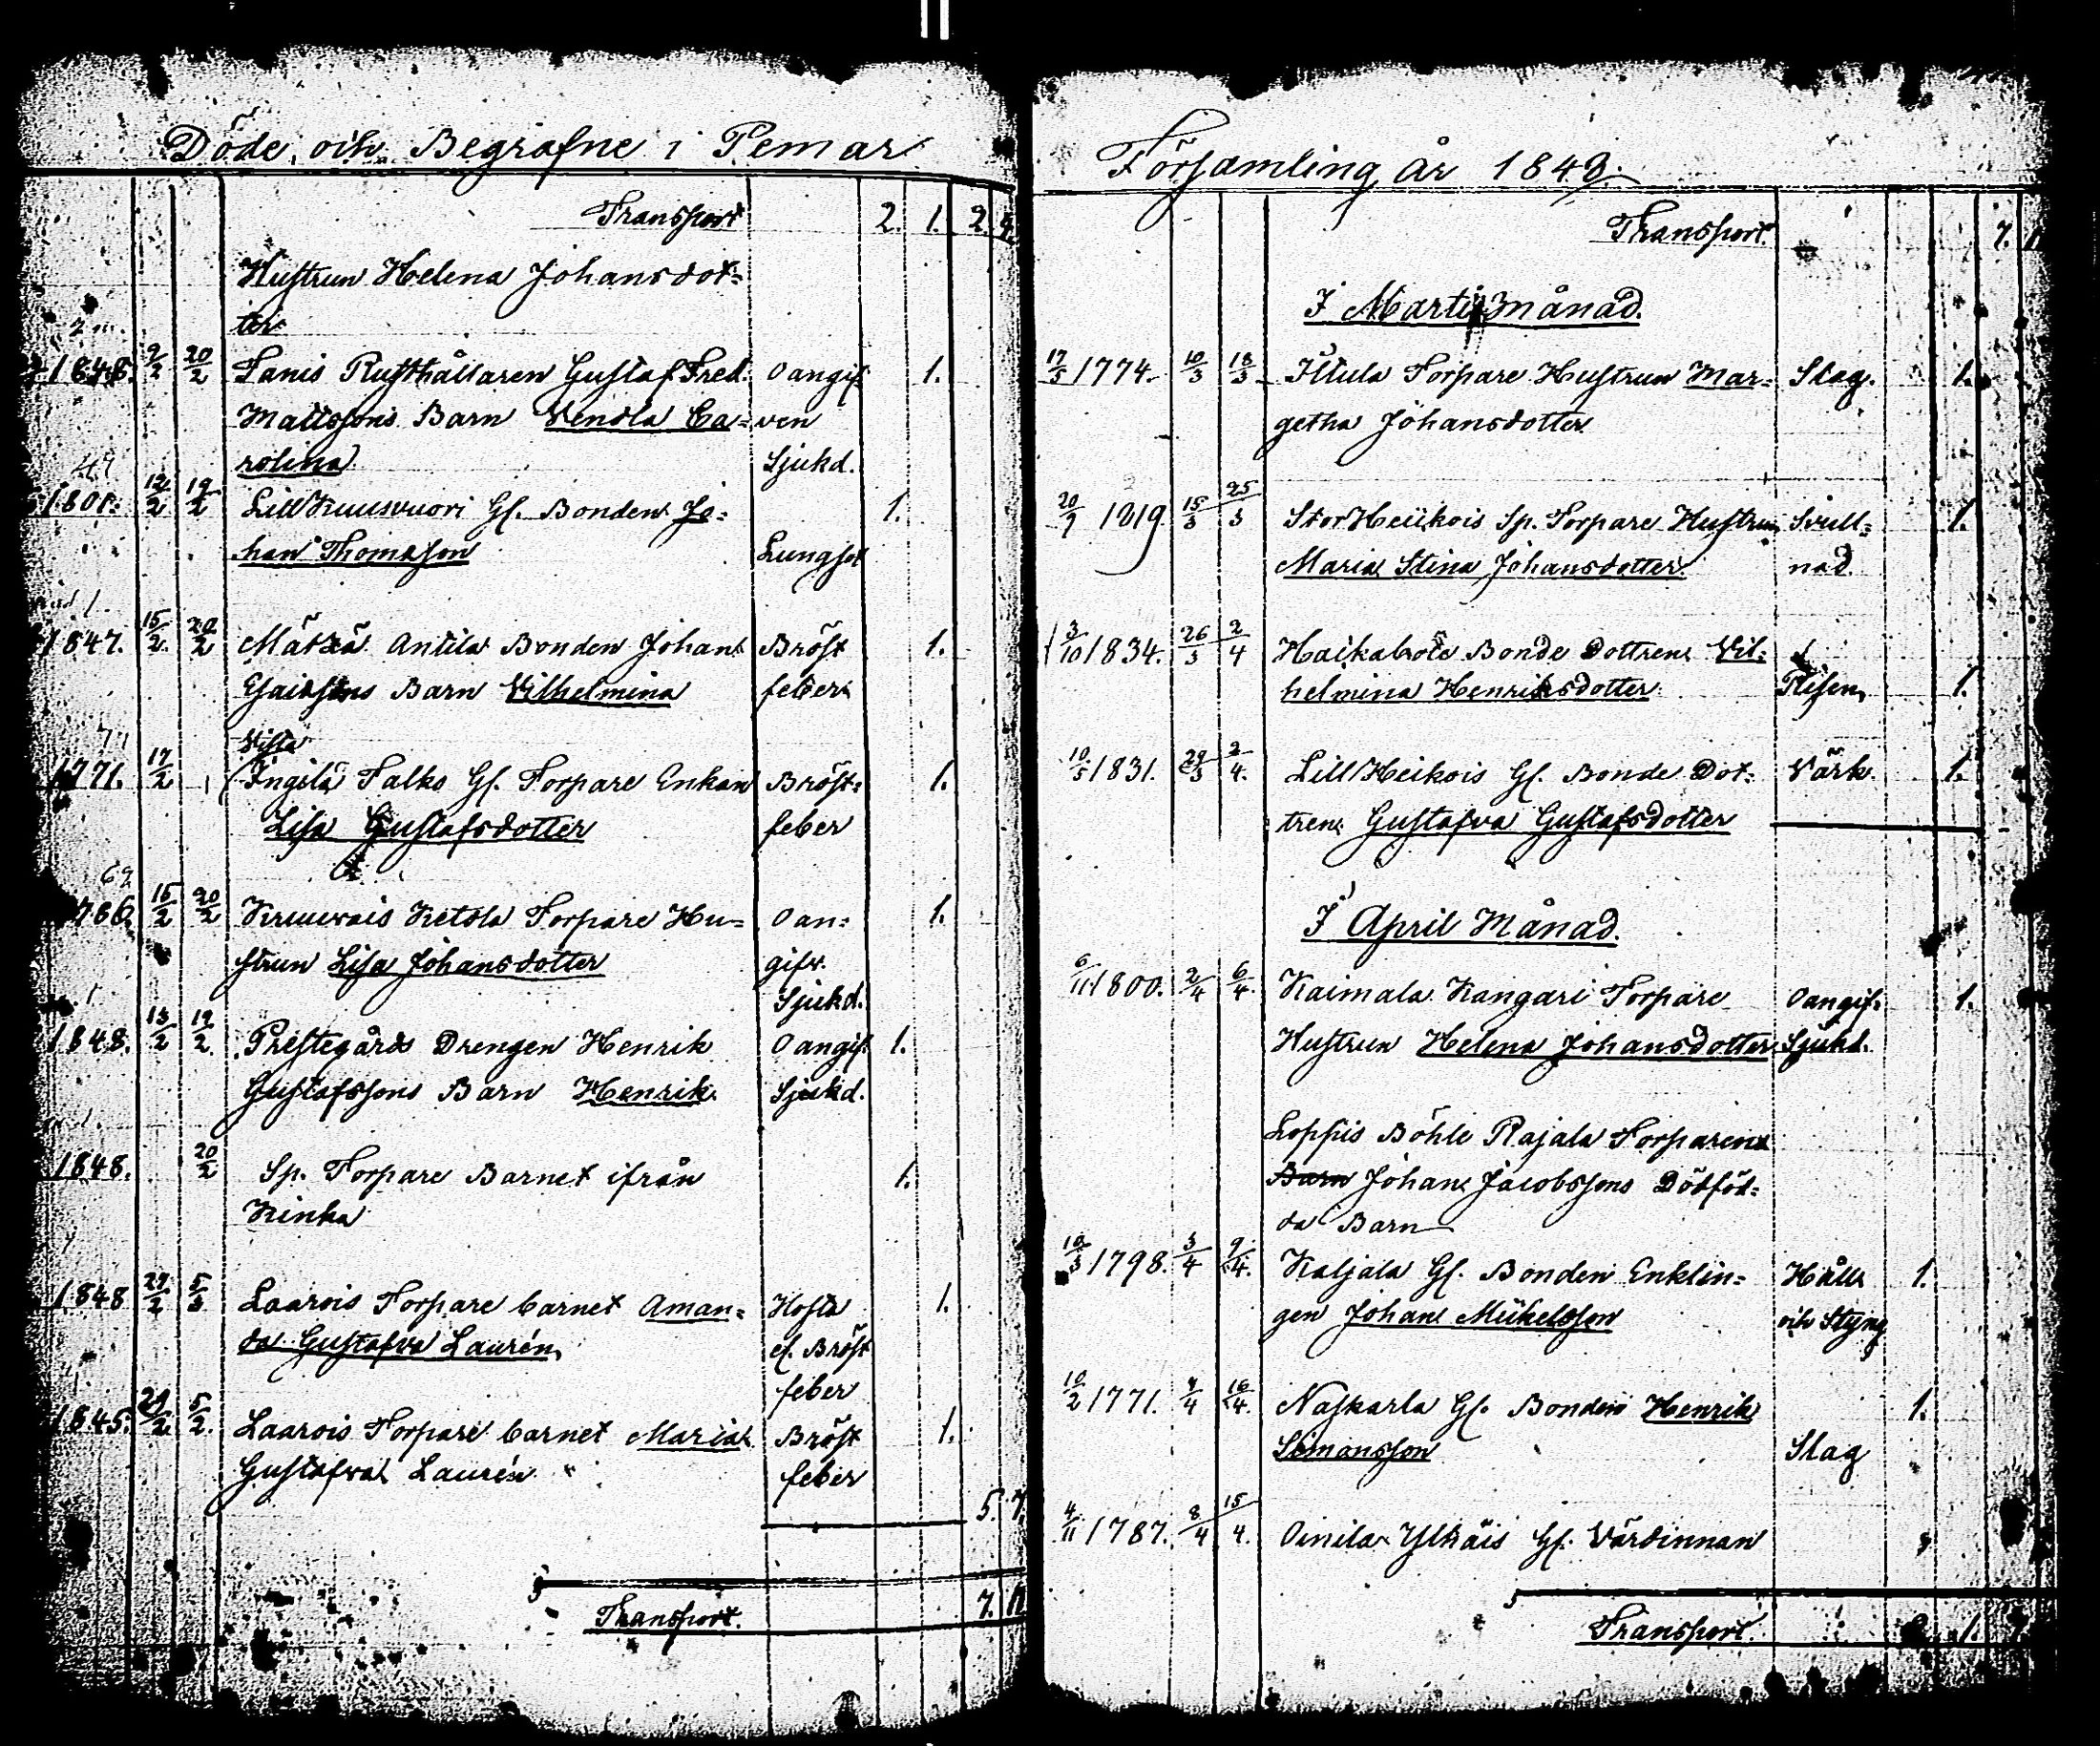 Döde och Begrafne i Pemar
Transport 2. 1. 2. 4.
Hustrun Helena Johansdot=
ter
2 m.
1848. 9/2 20/2 Tanis Rusthållaren Gustaf Fred. Oangif 1.
Mattssons Barn Vendla Ca= ven
rolina Sjukd.
1801. 12/2 19/2 Lill Kuusvuori Gl. Bonden Jo= 1.
han Thomasson Lungsot
1847. 15/2 20/2 Mätzä Antila Bonden Johan Bröst 1.
Esaiasons Barn Vilhelmina feber
Vista
1771. 17/2 Ingilä Falko Gl. Torpare Enkan Bröst= 1.
Lisa Gustafsdotter feber
1786 15/2 20/2 Kruuvais Ketola Torpare Hu= Oan= 1.
strun Lisa Johansdotter gifv.
Sjukd.
1848. 13/2 19/2 Prestegårds Drengen Henrik Oangif 1.
Gustafssons Barn Henrik Sjukd.
1848. 20/2 Sp. Torpare Barnet ifrån 1.
Kinka
1848 29/2 5/3 Laarois Torpare barnet Aman= Hosta 1.
da Gustafva Laurén el. Bröst
feber
1845. 29/2 5/2 Laarois Torpare barnet Maria Bröst 1.
Gustafva Laurén feber
5. 7.
Transport. 7. 11
Församling år 1848.
Transport. 7. 11
I Martii Månad.
17/3 1774. 10/3 18/3 Iltula Torpare Hustrun Mar= Slag. 1.
getha Johansdotter
20/7 1819 15/3 25/3 Stor Heikois Sp. Torpare Hustrun Svull= 1.
Maria Stina Johansdotter nad.
3/10 1834. 26/3 2/4 Haikabole Bonde Dottren Vil=
helmina Henriksdotter Risen 1.
10/5 1831. 29/3 2/4. Lill Heikois Gl. Bonde Dot= Värk 1.
tren Gustafva Gustafsdotter
I April Månad.
6/11 1800. 2/4 6/4. Kaimala Kangari Torpare Oangif. 1.
Hustrun Helena Johansdotter Sjukd.
Loppis Böhle Rajala Torparen
Barn Johan Jacobssons Dödföd=
da Barn
10/3 1798. 3/4 9/4. Kaljala Gl. Bonden Enklin= Håll 1.
gen Johan Mickelsson och Styng
10/2 1771. 4/4 16/4. Naskarla Gl. Bonden Henrik 1.
Simonsson Slag
4/11 1787. 8/4 15/4. Oinila Ylhäis Gl. Värdinnan
Transport.